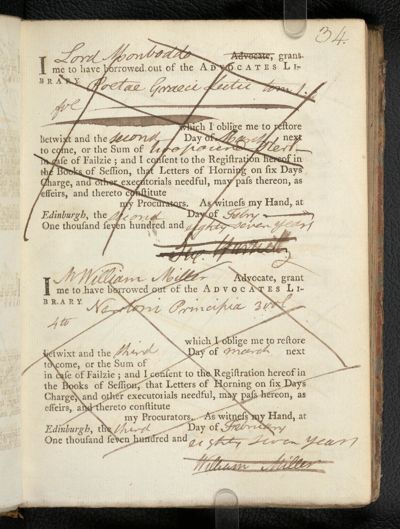 34.
I Lord Monboddo Advocate, grant
me to have borrowed out of the ADVOCATES LI-
BRARY Poetae Graeci
fol
which I oblige me to restore
betwixt and the second Day of March next
to come, or the Sum of two pounds Ster:
in case of Failzie; and I consent to the Registration hereof in
the Books of Session, that Letters of Horning on six Days
Charge, and other executorials needful, may pass thereon, as
effeirs, and thereto constitute
my Procurators. As witness my Hand, at
Edinburgh, the second Day of Febry
One thousand seven hundred and eighty seven years
I Mr William Miller Advocate, grant
me to have borrowed out of the ADVOCATES LI-
BRARY Newtoni Principia 3 vol
4to
which I oblige me to restore
betwixt and the third Day of march next
to come, or the Sum of
in case of Failzie; and I consent to the Registration hereof in
the Books of Session, that Letters of Horning on six Days
Charge, and other executorials needful, may pass hereon, as
effeirs, and thereto constitute
my Procurators. As witness my Hand, at
Edinburgh, the third Day of February
One thousand seven hundred and eighty seven years
William Miller